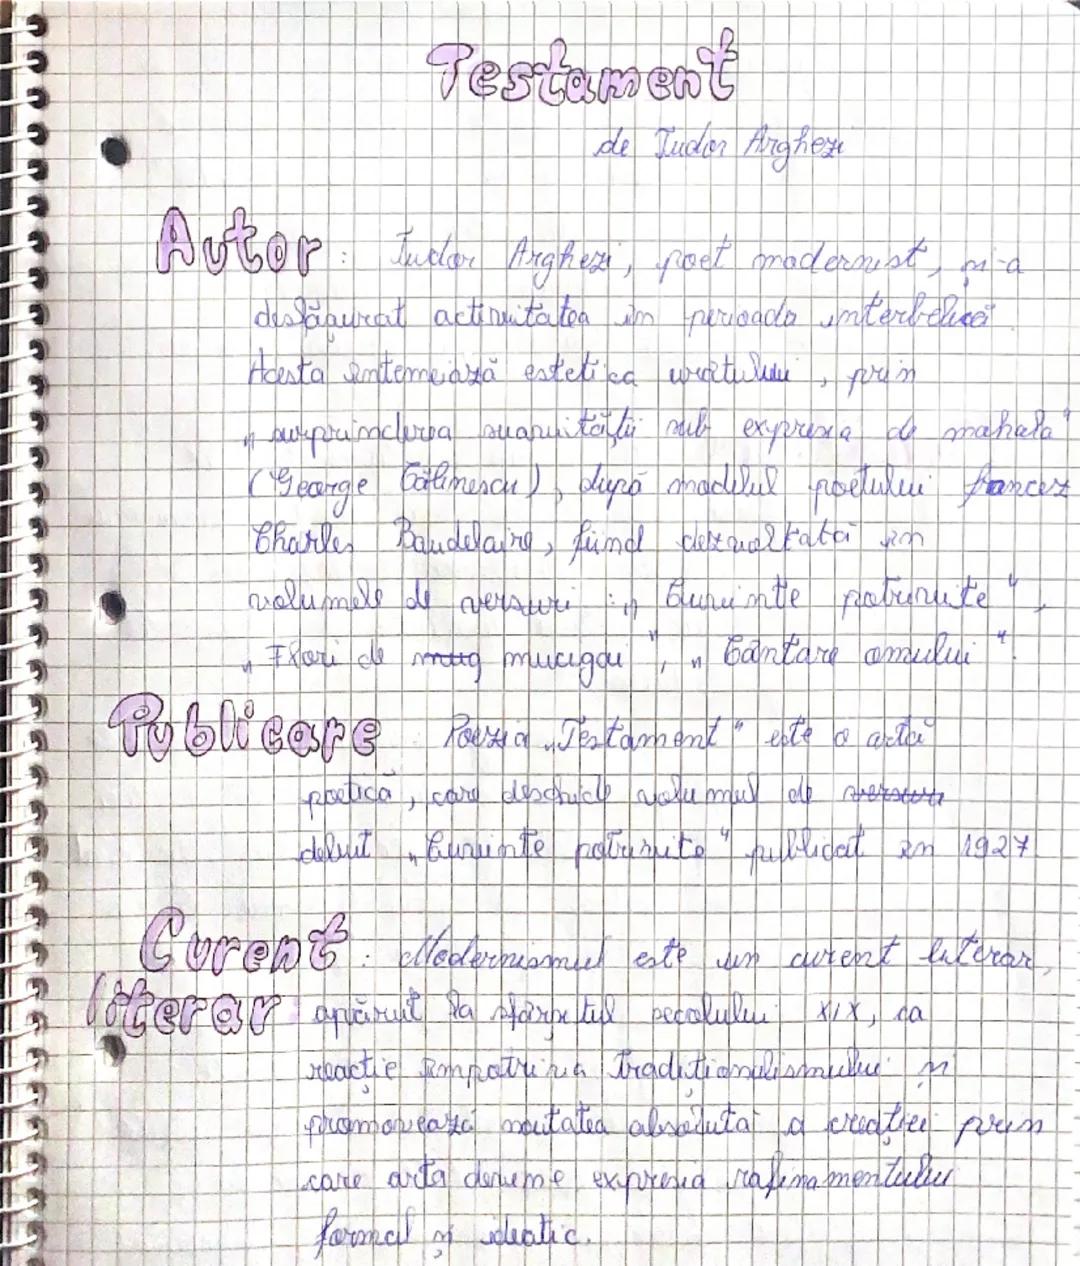 Testament
de Tudor Arghezi
Autor: Tudor Arghezi, poet modernist, și-a
desfășurat activitatea în perioada interbelică
Acesta întemeiază estetica urâtului, prin
„surprinderea suavității sub expresia de mahala"
(George Călinescu), după modelul poetului francez
Charles Baudelaire, fiind dezvoltată în
volumele de versuri: „Cuvinte potrivite",
„Flori de mucigai", „Cântare omului".
Publicare Poezia „Testament" este o artă
poetică, care deschide volumul de versuri
debut „Cuvinte potrivite" publicat în 1927
Curent : Modernismul este un curent literar,
literar apărut la sfârșitul secolului XIX, ca
reacție împotriva tradiționalismului și
promovează noutatea absolută a creației prin
care arta devine expresia rafinamentului
formal și ideatic.